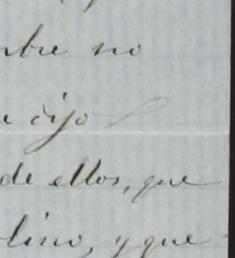 mbre no
e dijo
de ellos, que
lino, y que